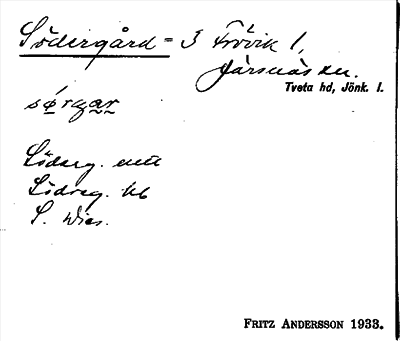 Södergård = 3 Frövik 1,
Järsnäs sn.
Tveta hd, Jönk. l.
Söderg.
Södreg.
S.
FRITZ ANDERSSON 1933.